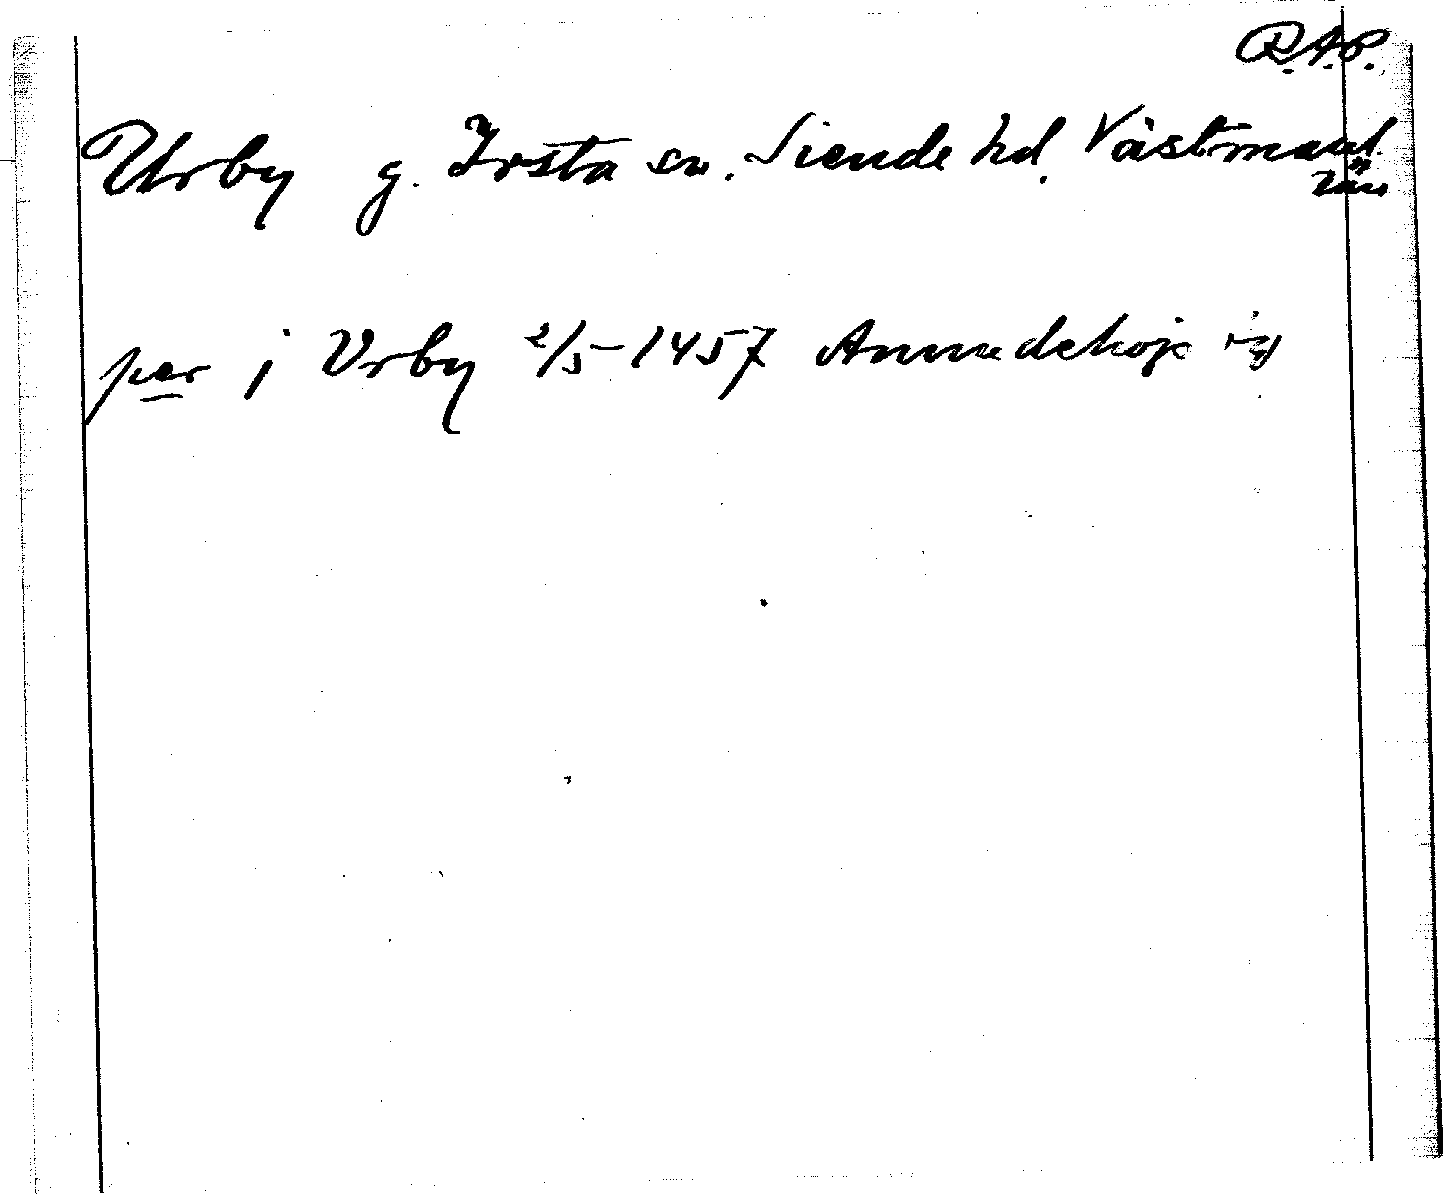 R.A.P.
Urby g. Irsta sn. Siende hd. Västmanl.
län
per i Vrby 2/5-1457 Ammedehoje